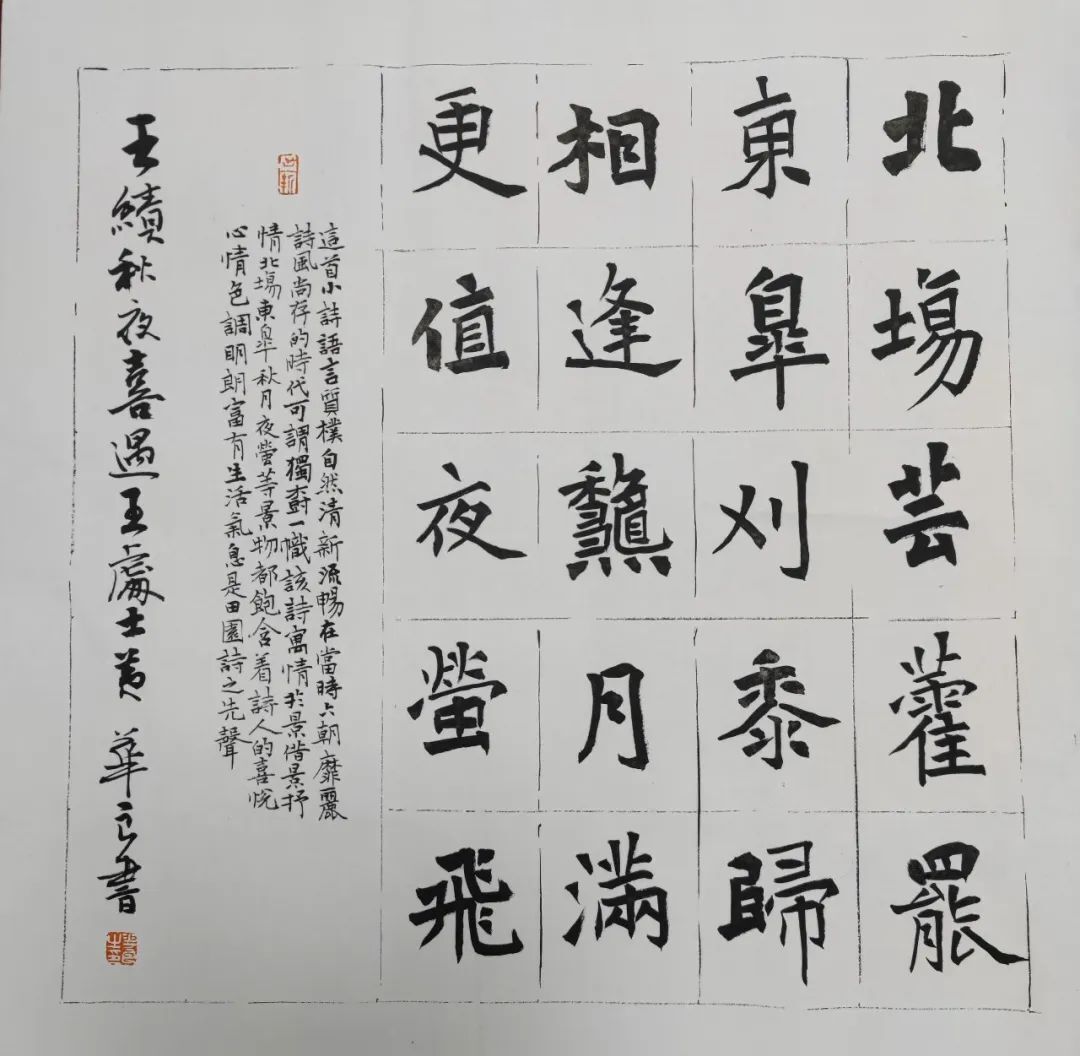 北場芸藿罷
東皐刈黍歸
相逢龝月滿
更值夜螢飛
這首小詩語言質樸自然清新流暢在當時六朝靡麗
詩風尚存的時代可謂獨樹一幟該詩寓情於景借景抒
情北場東皐秋月夜螢等景物都飽含着詩人的喜悅
心情色調明朗富有生活氣息是田園詩之先聲
王績秋夜喜遇王處士 華 書